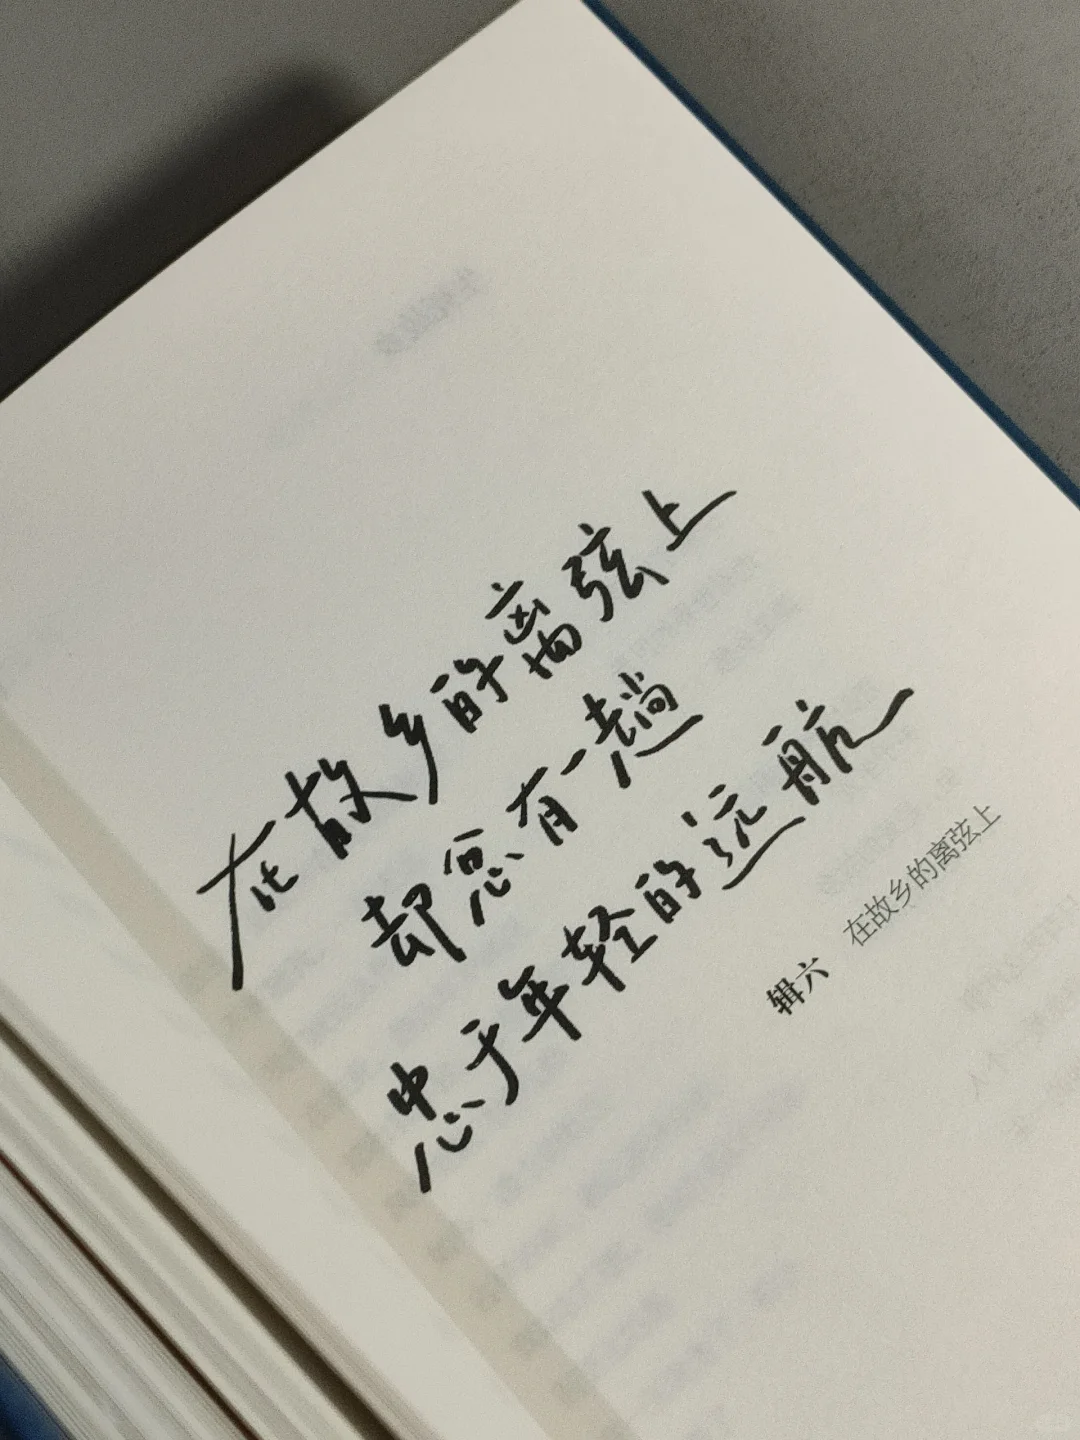 在故乡的离弦上
却愿有一趟
忠于年轻的远航
辑六 在故乡的离弦上